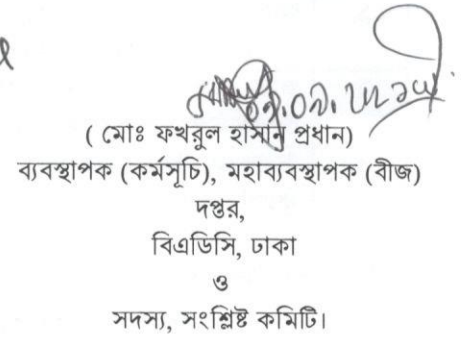 ( মোঃ ফখরুল হাসান প্রধান)
ব্যবস্থাপক (কর্মসূচি), মহাব্যবস্থাপক (বীজ)
দপ্তর,
বিএডিসি, ঢাকা
ও
সদস্য, সংশ্লিষ্ট কমিটি।